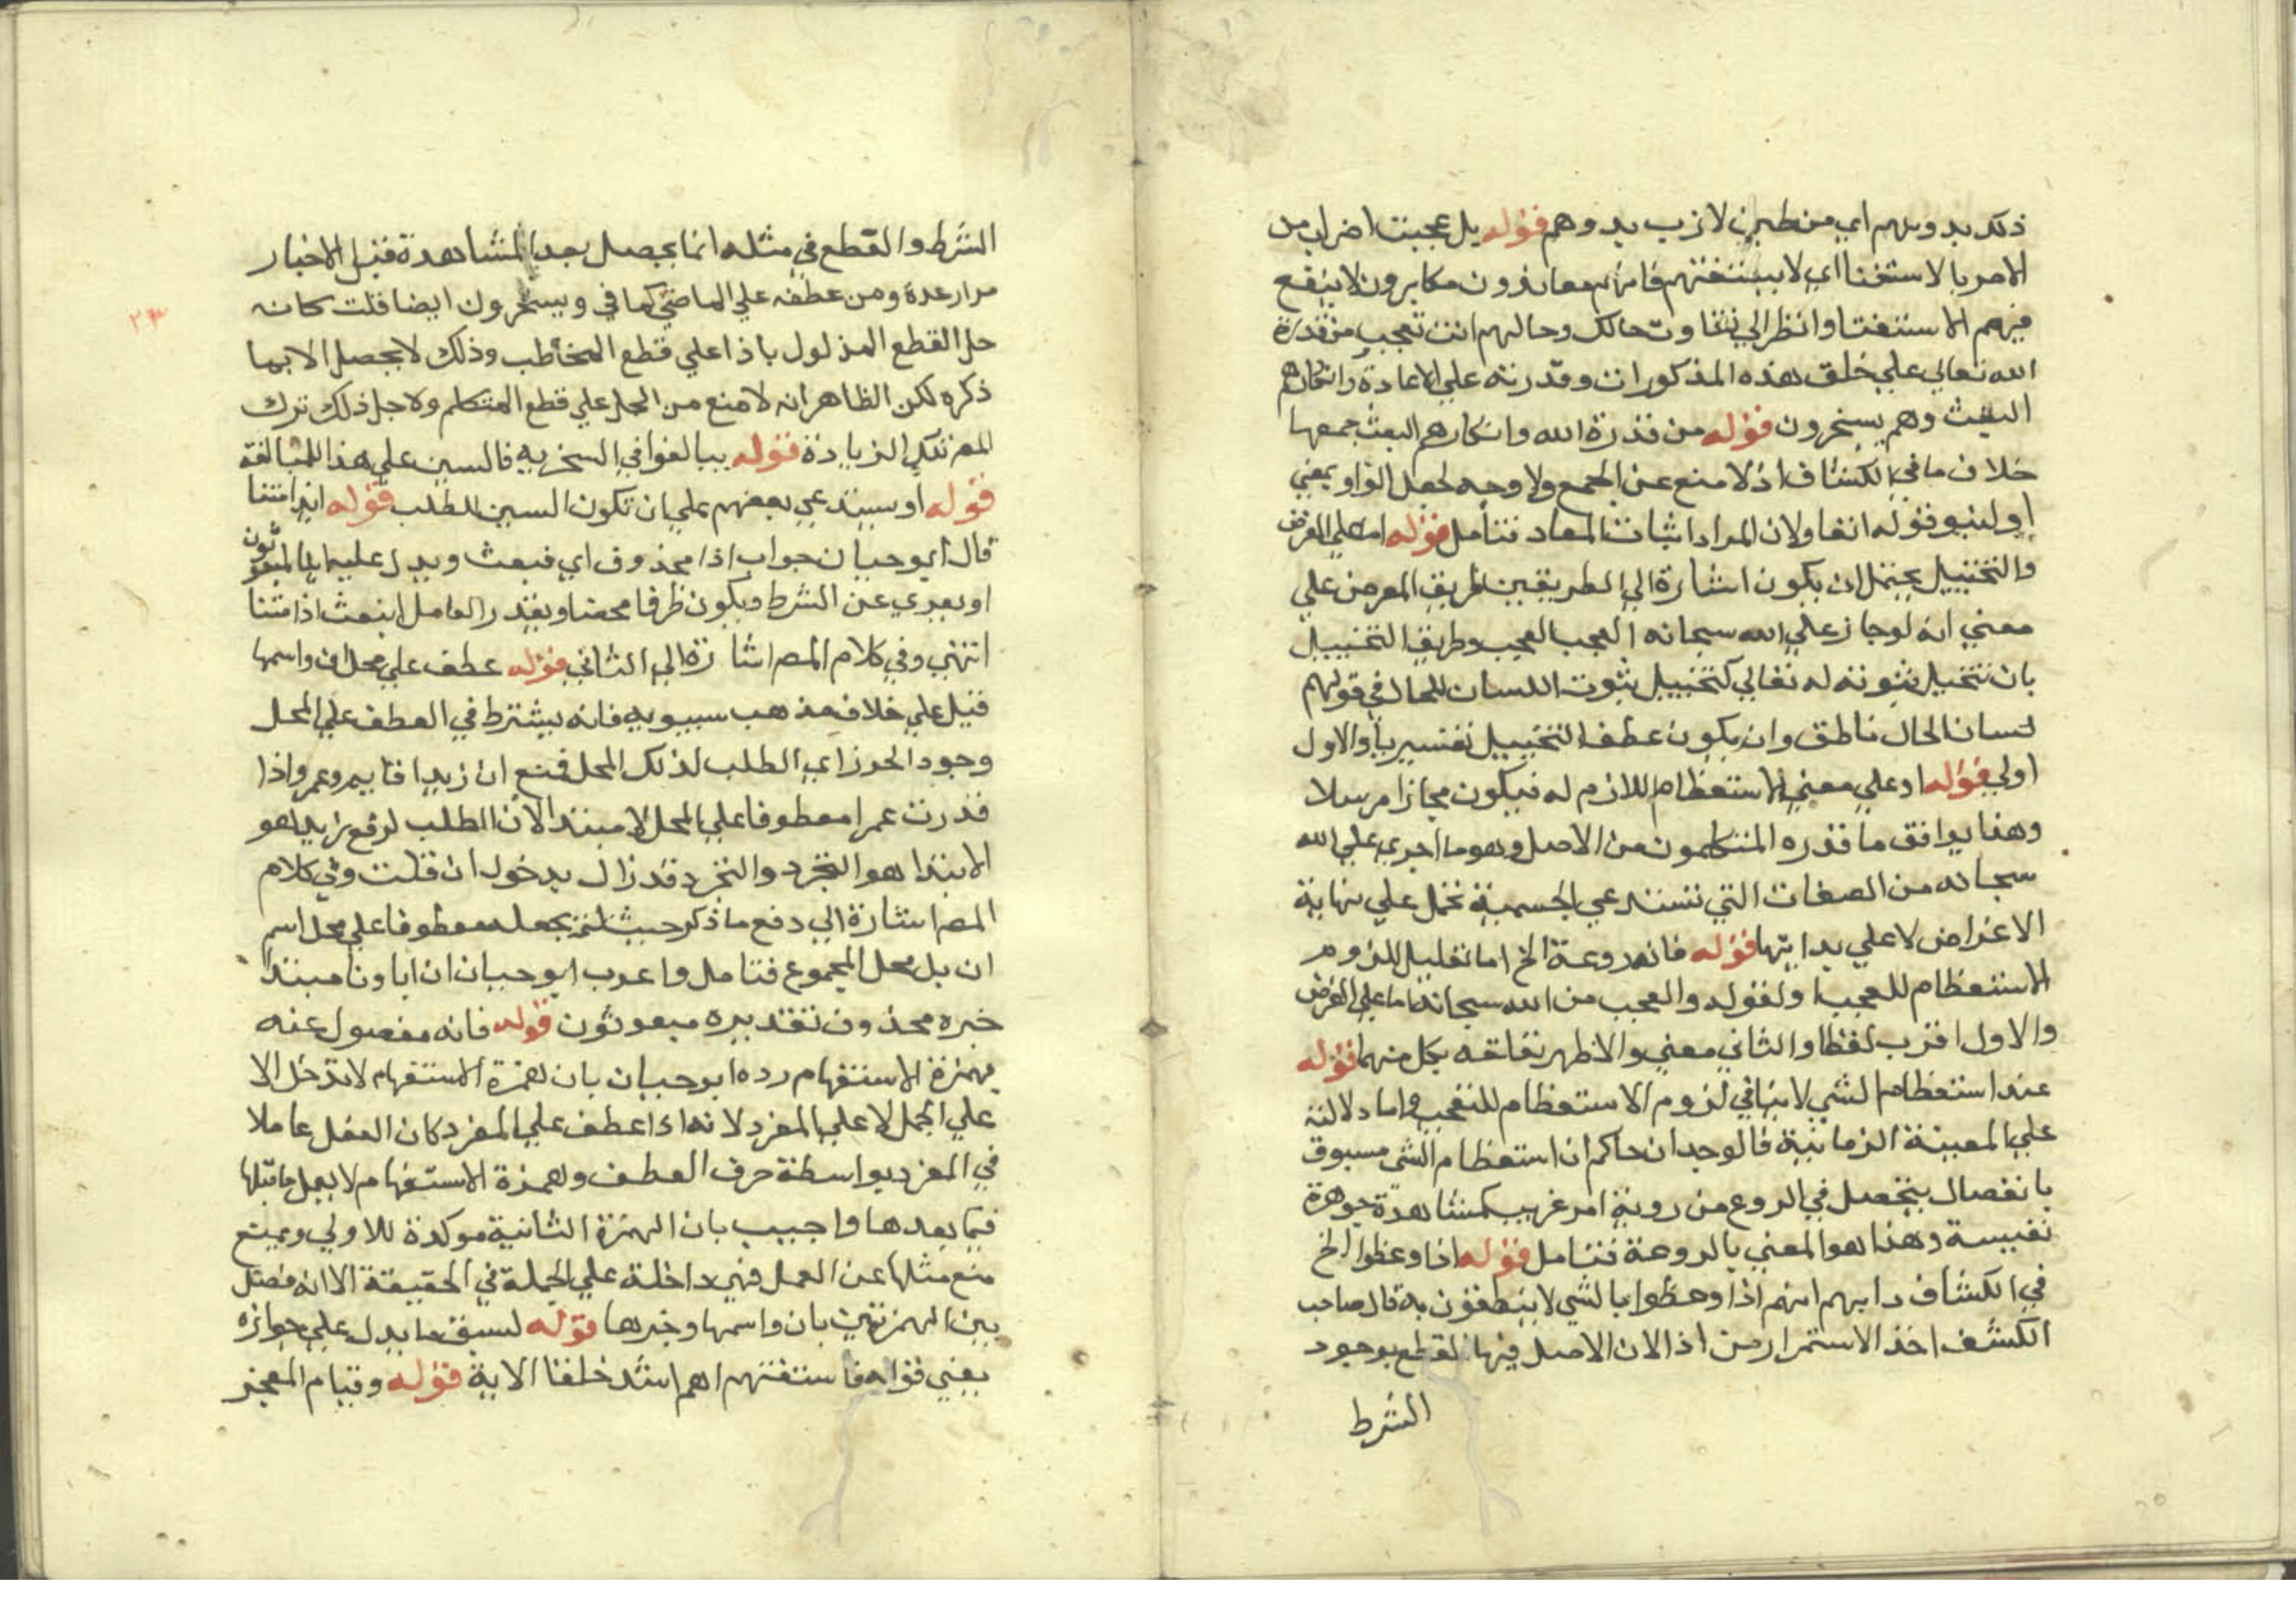 ذلك بدونهم اي من طين لازب بدوهم قوله بل عجبت اضراب من
الامر بالاستفتا اي لا يستفتهم فانهم معاندون مكابرون لا ينفع
فيهم الاستفتا وانظر الي تفاوت حالك وحالهم انت تعجب من قدرة
الله تعالي علي خلق هذه المذكورات وقدرته علي الاعادة وانكارهم
البعث وهم يسخرون قوله من قدرة الله وانكارهم البعث جمعها
خلاف ما في الكشاف اذ لا منع عن الجمع ولا وجه لجعل الواو بمعني
او لنبو قوله انفا ولان المراد اثبات المعاد فتامل قوله اما علي الفرض
والتخييل يحتمل ان يكون اشارة الي الطريقين طريق الفرض علي
معني انه لو جاز علي الله سبحانه العجب لعجب وطريق التخييل
بان تتخيل ثبوته له تعالي كتخييل ثبوت اللسان للحال في قولهم
لسان الحال ناطق وان يكون عطف التخييل تفسيريا والاول
اولي قوله او علي معني الاستعظام اللازم له فيكون مجازا مرسلا
وهذا يوافق ما قدره المتكلمون من الاصل وهو ما اجري علي الله
سبحانه من الصفات التي تستدعي الجسمية تحمل علي نهاية
الاغراض لا علي بدايتها قوله فانه روعة الخ اما تعليل للزوم
الاستعظام للعجب او لقوله والعجب من الله سبحانه اما علي الفرض
والاول اقرب لفظا والثاني معني والاظهر تعلقه بكل منهما قوله
عند استعظام الشي لا ينافي لزوم الاستعظام للتعجب واما دلالته
علي المعينة الزمانية فالوجدان حاكم ان استعظام الشي مسبوق
بانفصال يتحصل في الروع من روية امر غريب كمشاهدة جوهرة
نفيسة وهذا هو المعني بالروعة فتامل قوله اذا وعظوا الخ
في الكشاف دابهم انهم اذا وعظوا بالشي لا يتعظون به قال صاحب
الكشف اخذ الاستمرار من اذا لان الاصل فيها القطع بوجود
الشرط
الشرط والقطع في مثله انما يحصل بعد المشاهدة قبل الاخبار
مرار عدة ومن عطفه علي الماضي كما في ويسخرون ايضا قلت كانه
حل القطع المدلول باذا علي قطع المخاطب وذلك لا يحصل الا بما
ذكره لكن الظاهر انه لا منع من الحمل علي قطع المتكلم ولاجل ذلك ترك
المص تلك الزيادة قوله يبالغوا في السخريه فالسين علي هذا للمبالغة
قوله او يستدعي بعضهم علي ان تكون السين للطلب قوله ائذا متنا
قال ابو حيان جواب اذا محذوف اي فبعث ويدل عليه اينا لمبعوثون
او يعري عن الشرط ويكون ظرفا محضا ويقدر العامل انبعث اذا متنا
انتهي وفي كلام المص اشارة الي الثاني قوله عطف علي محل ان واسمها
قيل علي خلاف مذهب سيبويه فانه يشترط في العطف علي المحل
وجود المحرز اي الطلب لذلك المحل فمنع ان زيدا قايم وعمر واذا
قدرت عمرا معطوفا علي المحل لا مبتدا لان الطلب لرفع زيد هو
الابتدا هو التجرد والتجرد قد زال بدخول ان قلت وفي كلام
المص اشارة الي دفع ما ذكر حيث لم يجعله معطوفا علي محل اسم
ان بل محل المجموع فتامل واعرب ابو حيان ان اباونا مبتدا
خبره محذوف تقديره مبعوثون قوله فانه مفصول عنه
بهمزة الاستفهام رده ابو حيان بان همزة الاستفهام لا تدخل الا
علي الجمل لا علي المفرد لانه اذا عطف علي المفرد كان الفعل عاملا
في المفرد بواسطة حرف العطف وهمزة الاستفهام لا يعمل ما قبلها
فيما بعدها واجيب بان الهمزة الثانية موكدة للاولي ويمتع
منع مثلها عن العمل فهي داخلة علي الجملة في الحقيقة الا انه فصل
بين الهمزتين بان واسمها وخبرها قوله لسبق ما يدل علي جوازه
يعني قوله فاستفتهم اهم اشد خلقا الاية قوله وقيام المعجز
٢٣